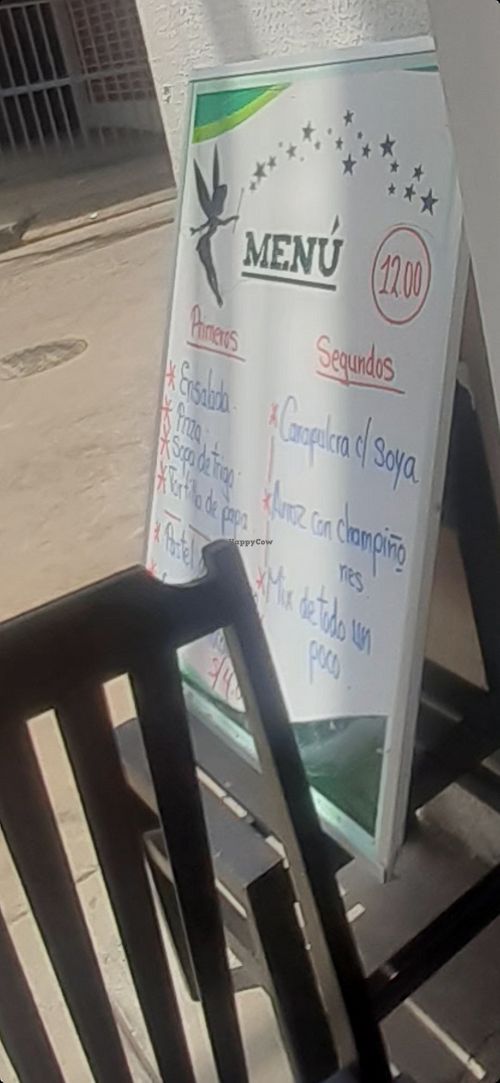 MENÚ
12.00
Primeros
* Ensalada.
* Pizza.
* Sopa de trigo.
* Tortilla de papa
* Pastel
Segundos
* Carapulcra c/ soya
* Arroz con champiño
nes.
* Mix de todo un
poco.
HappyCow